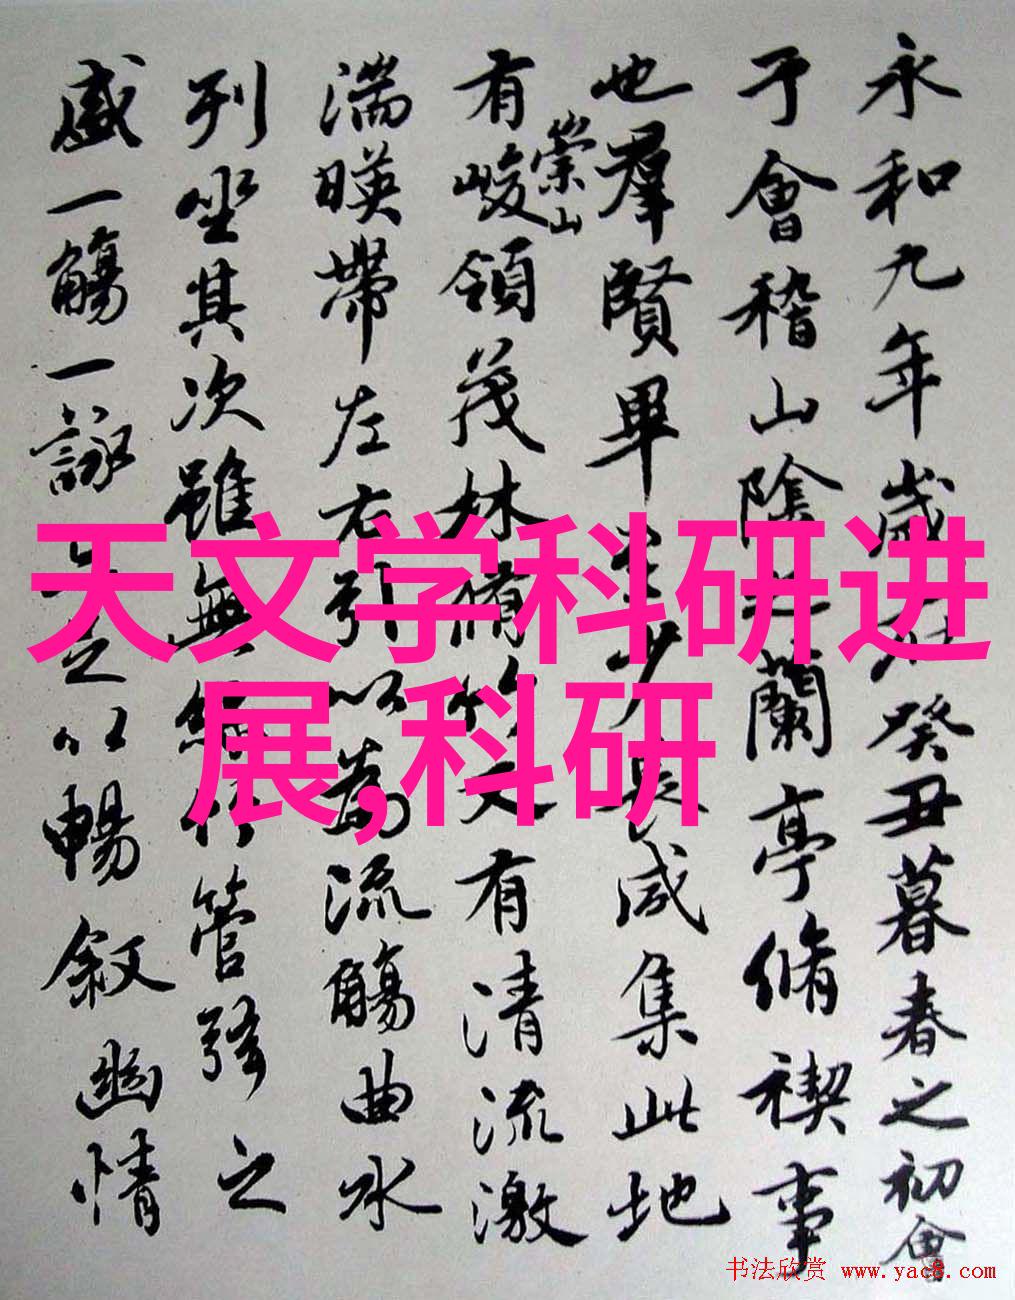 永和九年歲在癸丑暮春之初會
于會稽山陰之蘭亭脩禊事
也羣賢畢至少長咸集此地
有崇山峻領茂林脩竹又有清流激
湍暎帶左右引以為流觴曲水
列坐其次雖無絲竹管弦之
盛一觴一詠亦足以暢叙幽情
天文学科研进
展,科研
书法欣赏 www.yac8.com